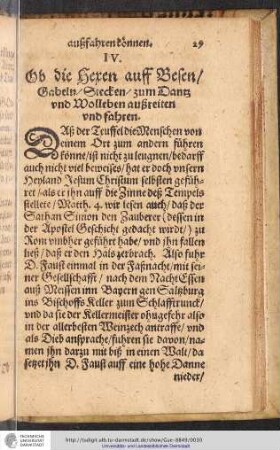 außfahren können. 29
IV.
Ob die Hexen auff Besen/
Gabeln/Stecken/zum Dantz
vnd Wolleben außreiten
vnd fahren.
DAß der Teuffel die Menschen von
einem Ort zum andern führen
könne/ist nicht zu leugnen/bedarff
auch nicht viel beweises/hat er doch vnsern
Heyland Jesum Christum selbsten gefüh-
ret/als er ihn auff die Zinne deß Tempels
stellete/Matth. 4. wir lesen auch/daß der
Sathan Simon den Zauberer (dessen in
der Apostel Geschicht gedacht wirdt/) zu
Rom vmbher geführt habe/vnd jhn fallen
ließ/daß er den Hals zerbrach. Also fuhr
D. Faust einmal in der Faßnacht/mit sei-
ner Gesellschafft/nach dem Nacht Essen
auß Meissen inn Bayern gen Saltzburg
ins Bischoffs Keller zum Schlafftrunck/
vnd da sie der Kellermeister ohngefehr also
in der allerbesten Weinzech antraffe/vnd
als Dieb ansprache/fuhren sie davon/na-
men jhn darzu mit biß in einen Walt/da
setzet jhn D. Faust auff eine hohe Danne
nieder/
TECHNISCHE
UNIVERSITÄT
DARMSTADT
http://tudigit.ulb.tu-darmstadt.de/show/Gun-8849/0033
Universitäts- und Landesbibliothek Darmstadt